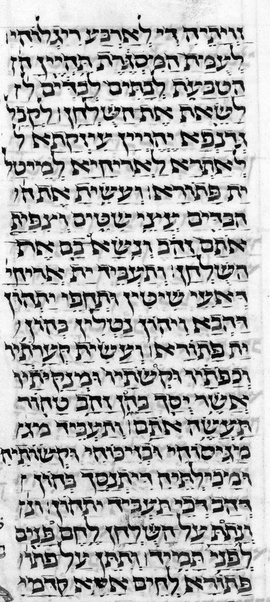 זויתיה די לארבע ריגלוהי
לעמת המסגרת תהיין הט
הטבעת לבתים לבדים לז
לשאת את השלחן לקבל
גדנפא יהויין עיזקתא ל
לאתרא לאריחיא למיטל
ית פתורא ועשית את ה
הבדים עיצי שטים וצפית
אתם זהב ונשא בם את
השלחן ותעביד ית אריחי
דאעי שיטין ותחפי יתהון
דהבא ויהון נטלין בהון
ית פתורא ועשית קערתיו
וכפתיו וקשתיו ומנקיתיו
אשר יסך בהן זהב טהור
תעשה אתם ותעביד מג
מגיסוהי ובזיכוהי וקשותיה
ומכילתיה דיתנסך בהון
דהב דכי תעביד יתהון ונ
ונתת על השלחן לחם פנים
לפני תמיד ותתן על פתו
פתורא לחים אפא קדמי